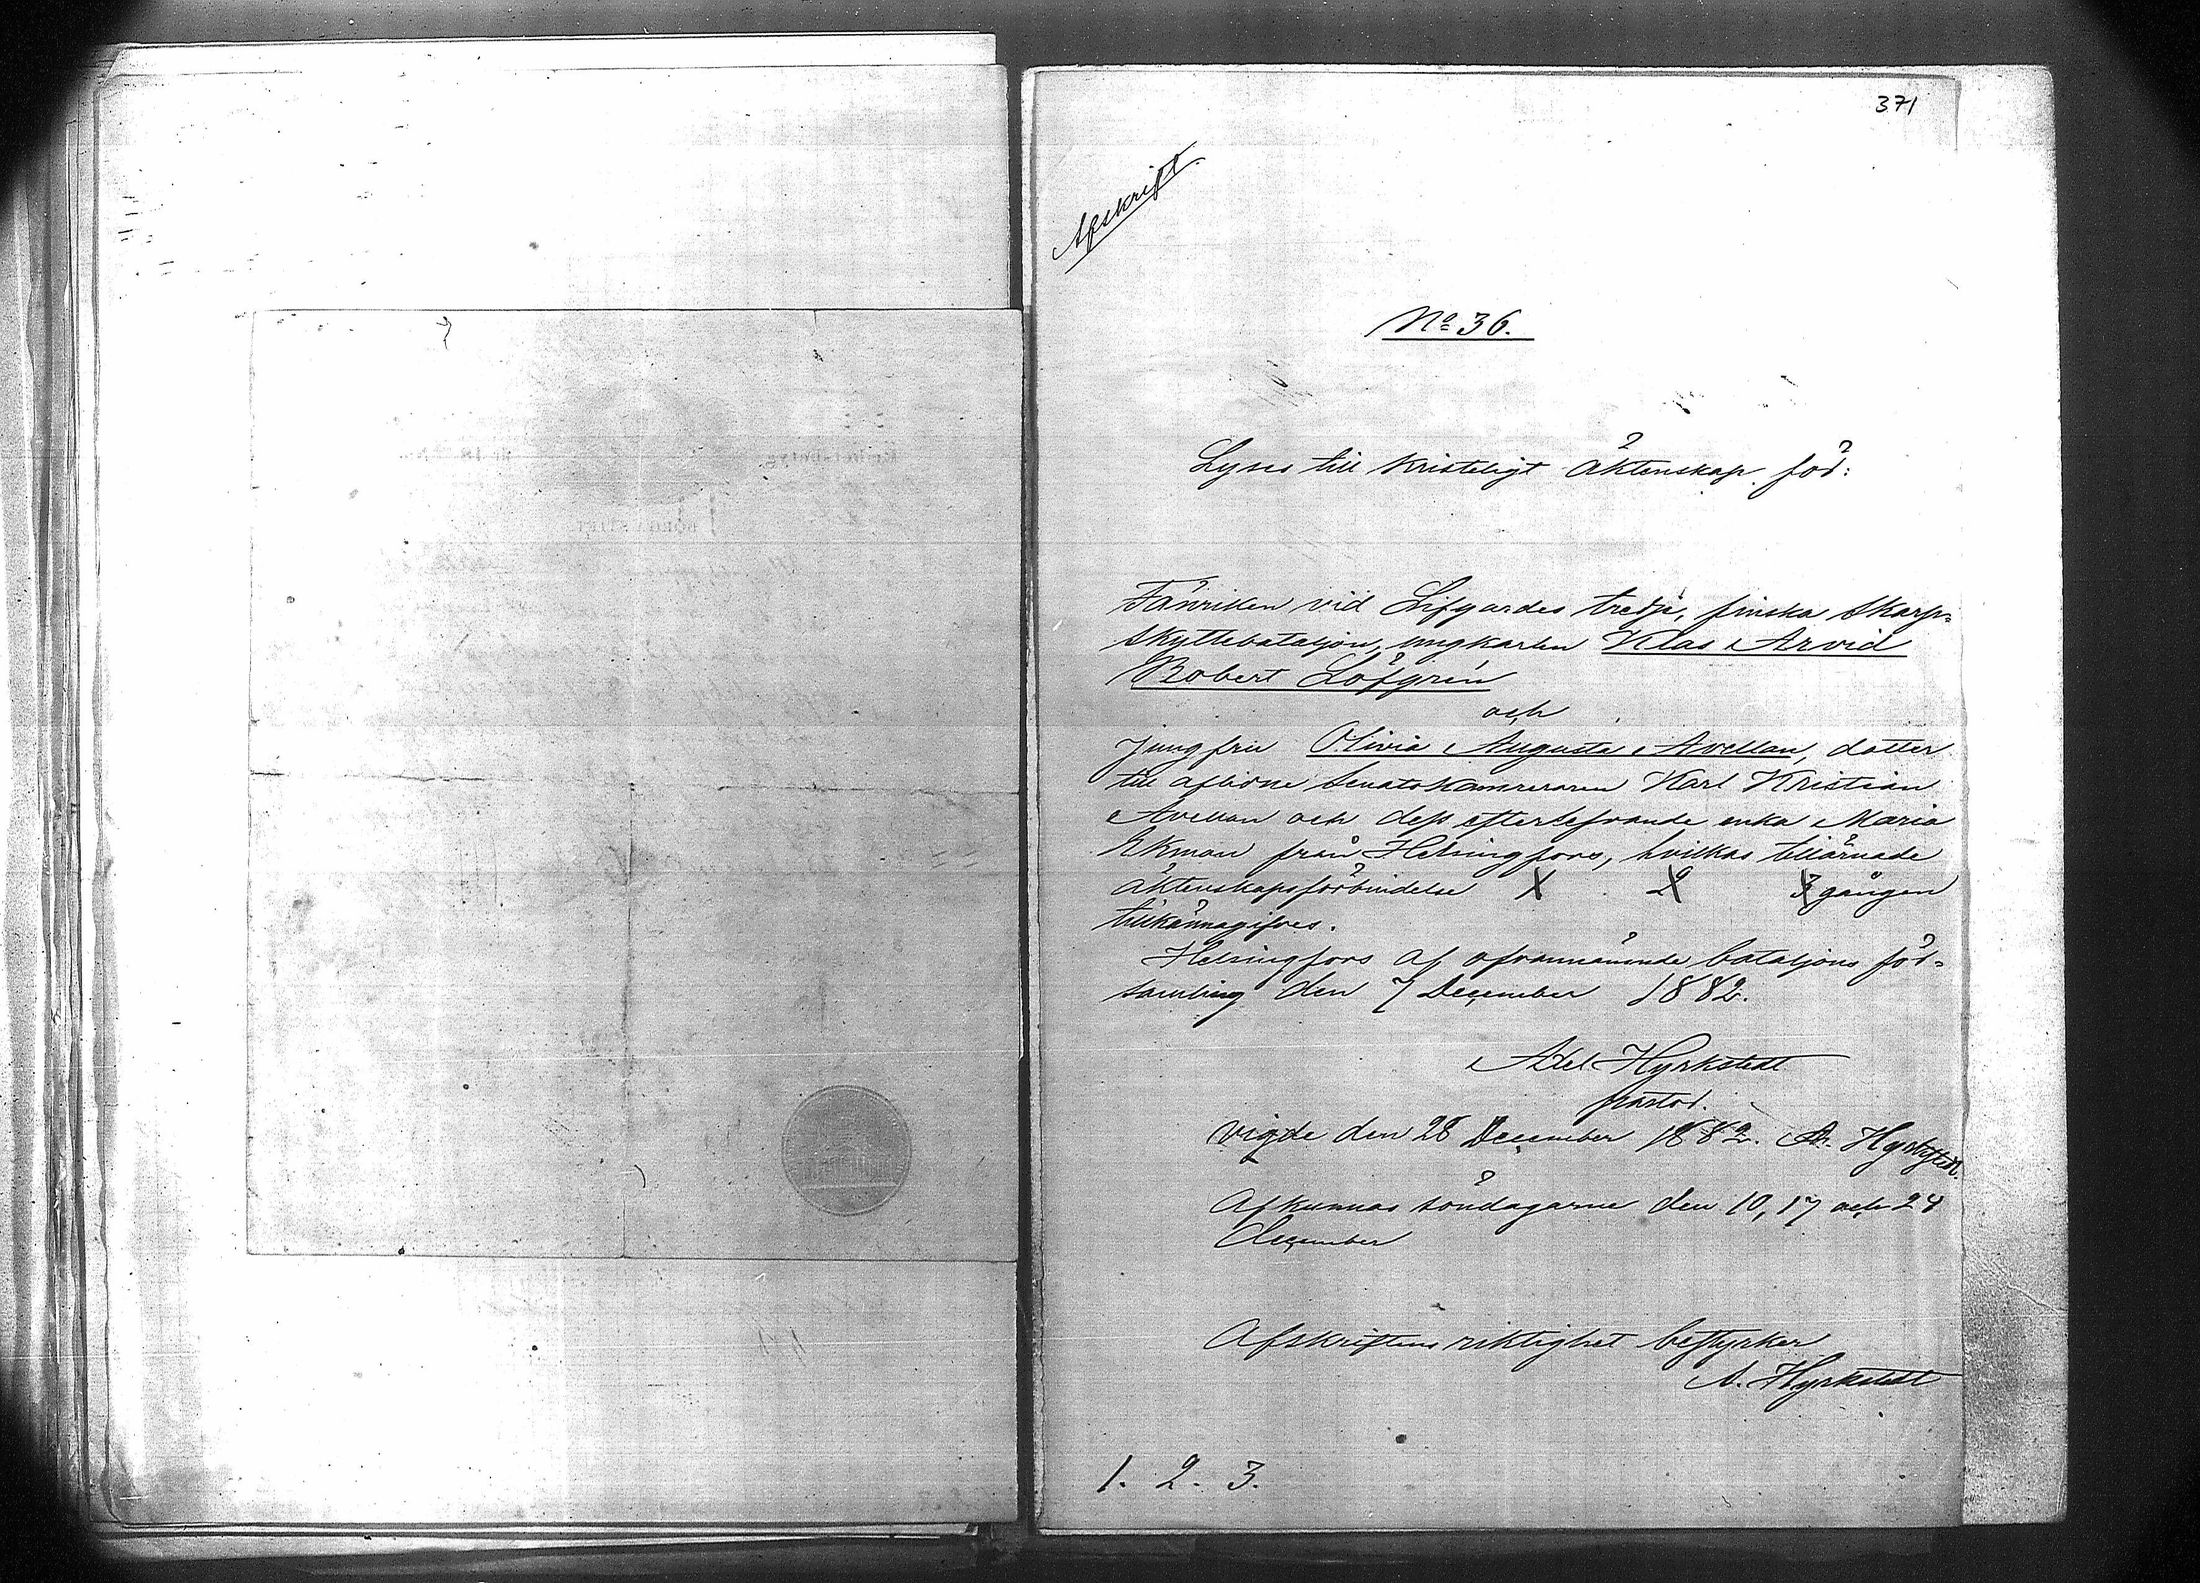 371
Afskrift.
No 36.
Lyses till kristeligt äktenskap för:
Fänriken vid Lifgardes tredje, finska Skarp=
skyttebataljon, ungkarlen Klas Arvid
Robert Löfgrén
och
Jungfru Olivia Augusta Avellan, dotter
till aflidne Senatskamreraren Karl Kristian
Avellan och dess efterlefvande enka Maria
Ekman från Helsingfors, hvilkas tillärnade
äktenskapsförbindelse 1 2 3 gången
tillkännagifves.
Helsingfors af ofvannämnde bataljons för=
samling den 7 December 1882.
Axel Hyrkstedt
pastor.
Vigde den 28 December 1882. A. Hyrkstedt.
Afkunnas söndagarne den 10, 17 och 24
December
Afskriftens riktighet bestyrker
A. Hyrkstedt
1. 2. 3.